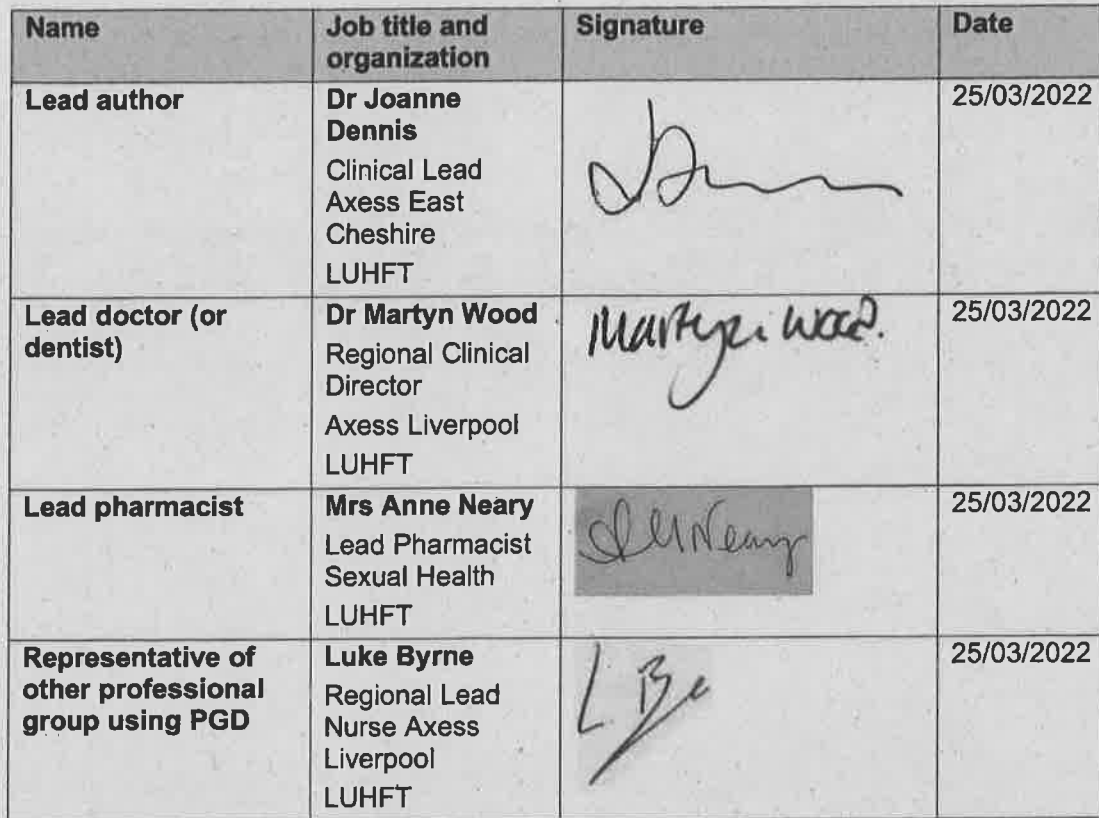 Name
Job title and
organization
Signature
Date
Lead author
Dr Joanne
Dennis
Clinical Lead
Axess East
Cheshire
LUHFT
25/03/2022
Lead doctor (or
dentist)
Dr Martyn Wood
Regional Clinical
Director
Axess Liverpool
LUHFT
Martyn Wood.
25/03/2022
Lead pharmacist
Mrs Anne Neary
Lead Pharmacist
Sexual Health
LUHFT
Neary
25/03/2022
Representative of
other professional
group using PGD
Luke Byrne
Regional Lead
Nurse Axess
Liverpool
LUHFT
25/03/2022